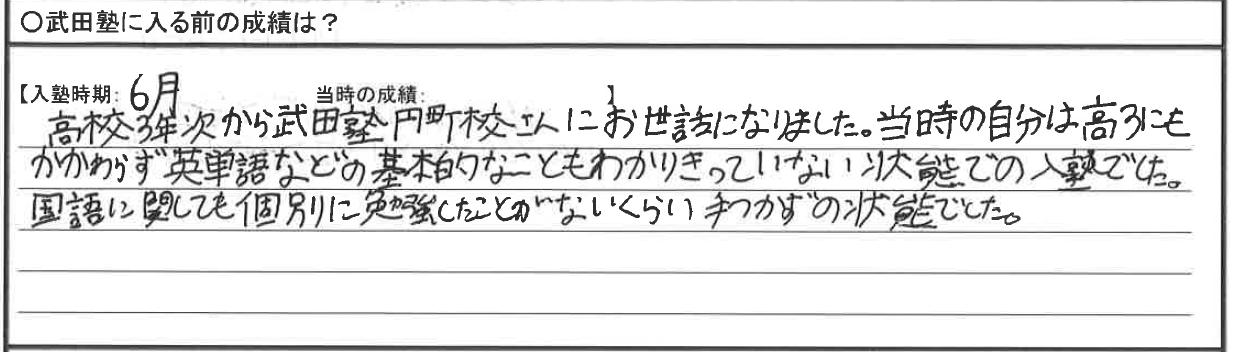 〇武田塾に入る前の成績は？
【入塾時期: 6月 当時の成績: 】
高校3年次から武田塾円町校さんにお世話になりました。当時の自分は高3にも
かかわらず英単語などの基本的なこともわかりきっていない状態での入塾でした。
国語に関しても個別に勉強したことがないくらい手つかずの状態でした。